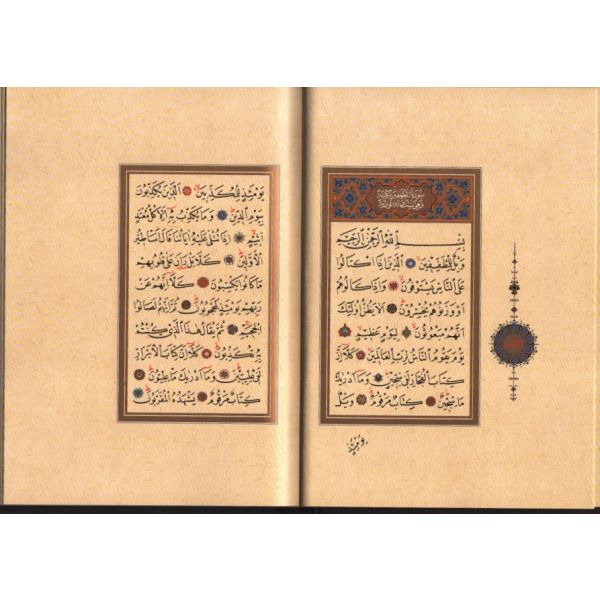 سُورَةُ الْمُطَفِّفِينَ مَكِّيَّةٌ
وَهِيَ سِتٌّ وَثَلَاثُونَ آيَةً
بِسْمِ اللَّهِ الرَّحْمَنِ الرَّحِيمِ
وَيْلٌ لِلْمُطَفِّفِينَ الَّذِينَ اِذَا اكْتَالُوا
عَلَى النَّاسِ يَسْتَوْفُونَ وَاِذَا كَالُوهُمْ
اَوْ وَزَنُوهُمْ يُخْسِرُونَ اَلَا يَظُنُّ اُولٰئِكَ
اَنَّهُمْ مَبْعُوثُونَ لِيَوْمٍ عَظِيمٍ
يَوْمَ يَقُومُ النَّاسُ لِرَبِّ الْعَالَمِينَ كَلَّا اِنَّ
كِتَابَ الْفُجَّارِ لَفِي سِجِّينٍ وَمَا اَدْرٰيكَ
مَا سِجِّينٌ كِتَابٌ مَرْقُومٌ وَيْلٌ
يَوْمَئِذٍ
يَوْمَئِذٍ لِلْمُكَذِّبِينَ الَّذِينَ يُكَذِّبُونَ
بِيَوْمِ الدِّينِ وَمَا يُكَذِّبُ بِهِ اِلَّا كُلُّ مُعْتَدٍ
اَثِيمٍ اِذَا تُتْلٰى عَلَيْهِ اٰيَاتُنَا قَالَ اَسَاطِيرُ
الْاَوَّلِينَ كَلَّا بَلْ رَانَ عَلٰى قُلُوبِهِمْ
مَا كَانُوا يَكْسِبُونَ كَلَّا اِنَّهُمْ عَنْ
رَبِّهِمْ يَوْمَئِذٍ لَمَحْجُوبُونَ ثُمَّ اِنَّهُمْ لَصَالُوا
الْجَحِيمِ ثُمَّ يُقَالُ هٰذَا الَّذِي كُنْتُمْ
بِهِ تُكَذِّبُونَ كَلَّا اِنَّ كِتَابَ الْاَبْرَارِ
لَفِي عِلِّيِّينَ وَمَا اَدْرٰيكَ مَا عِلِّيُّونَ
كِتَابٌ مَرْقُومٌ يَشْهَدُهُ الْمُقَرَّبُونَ